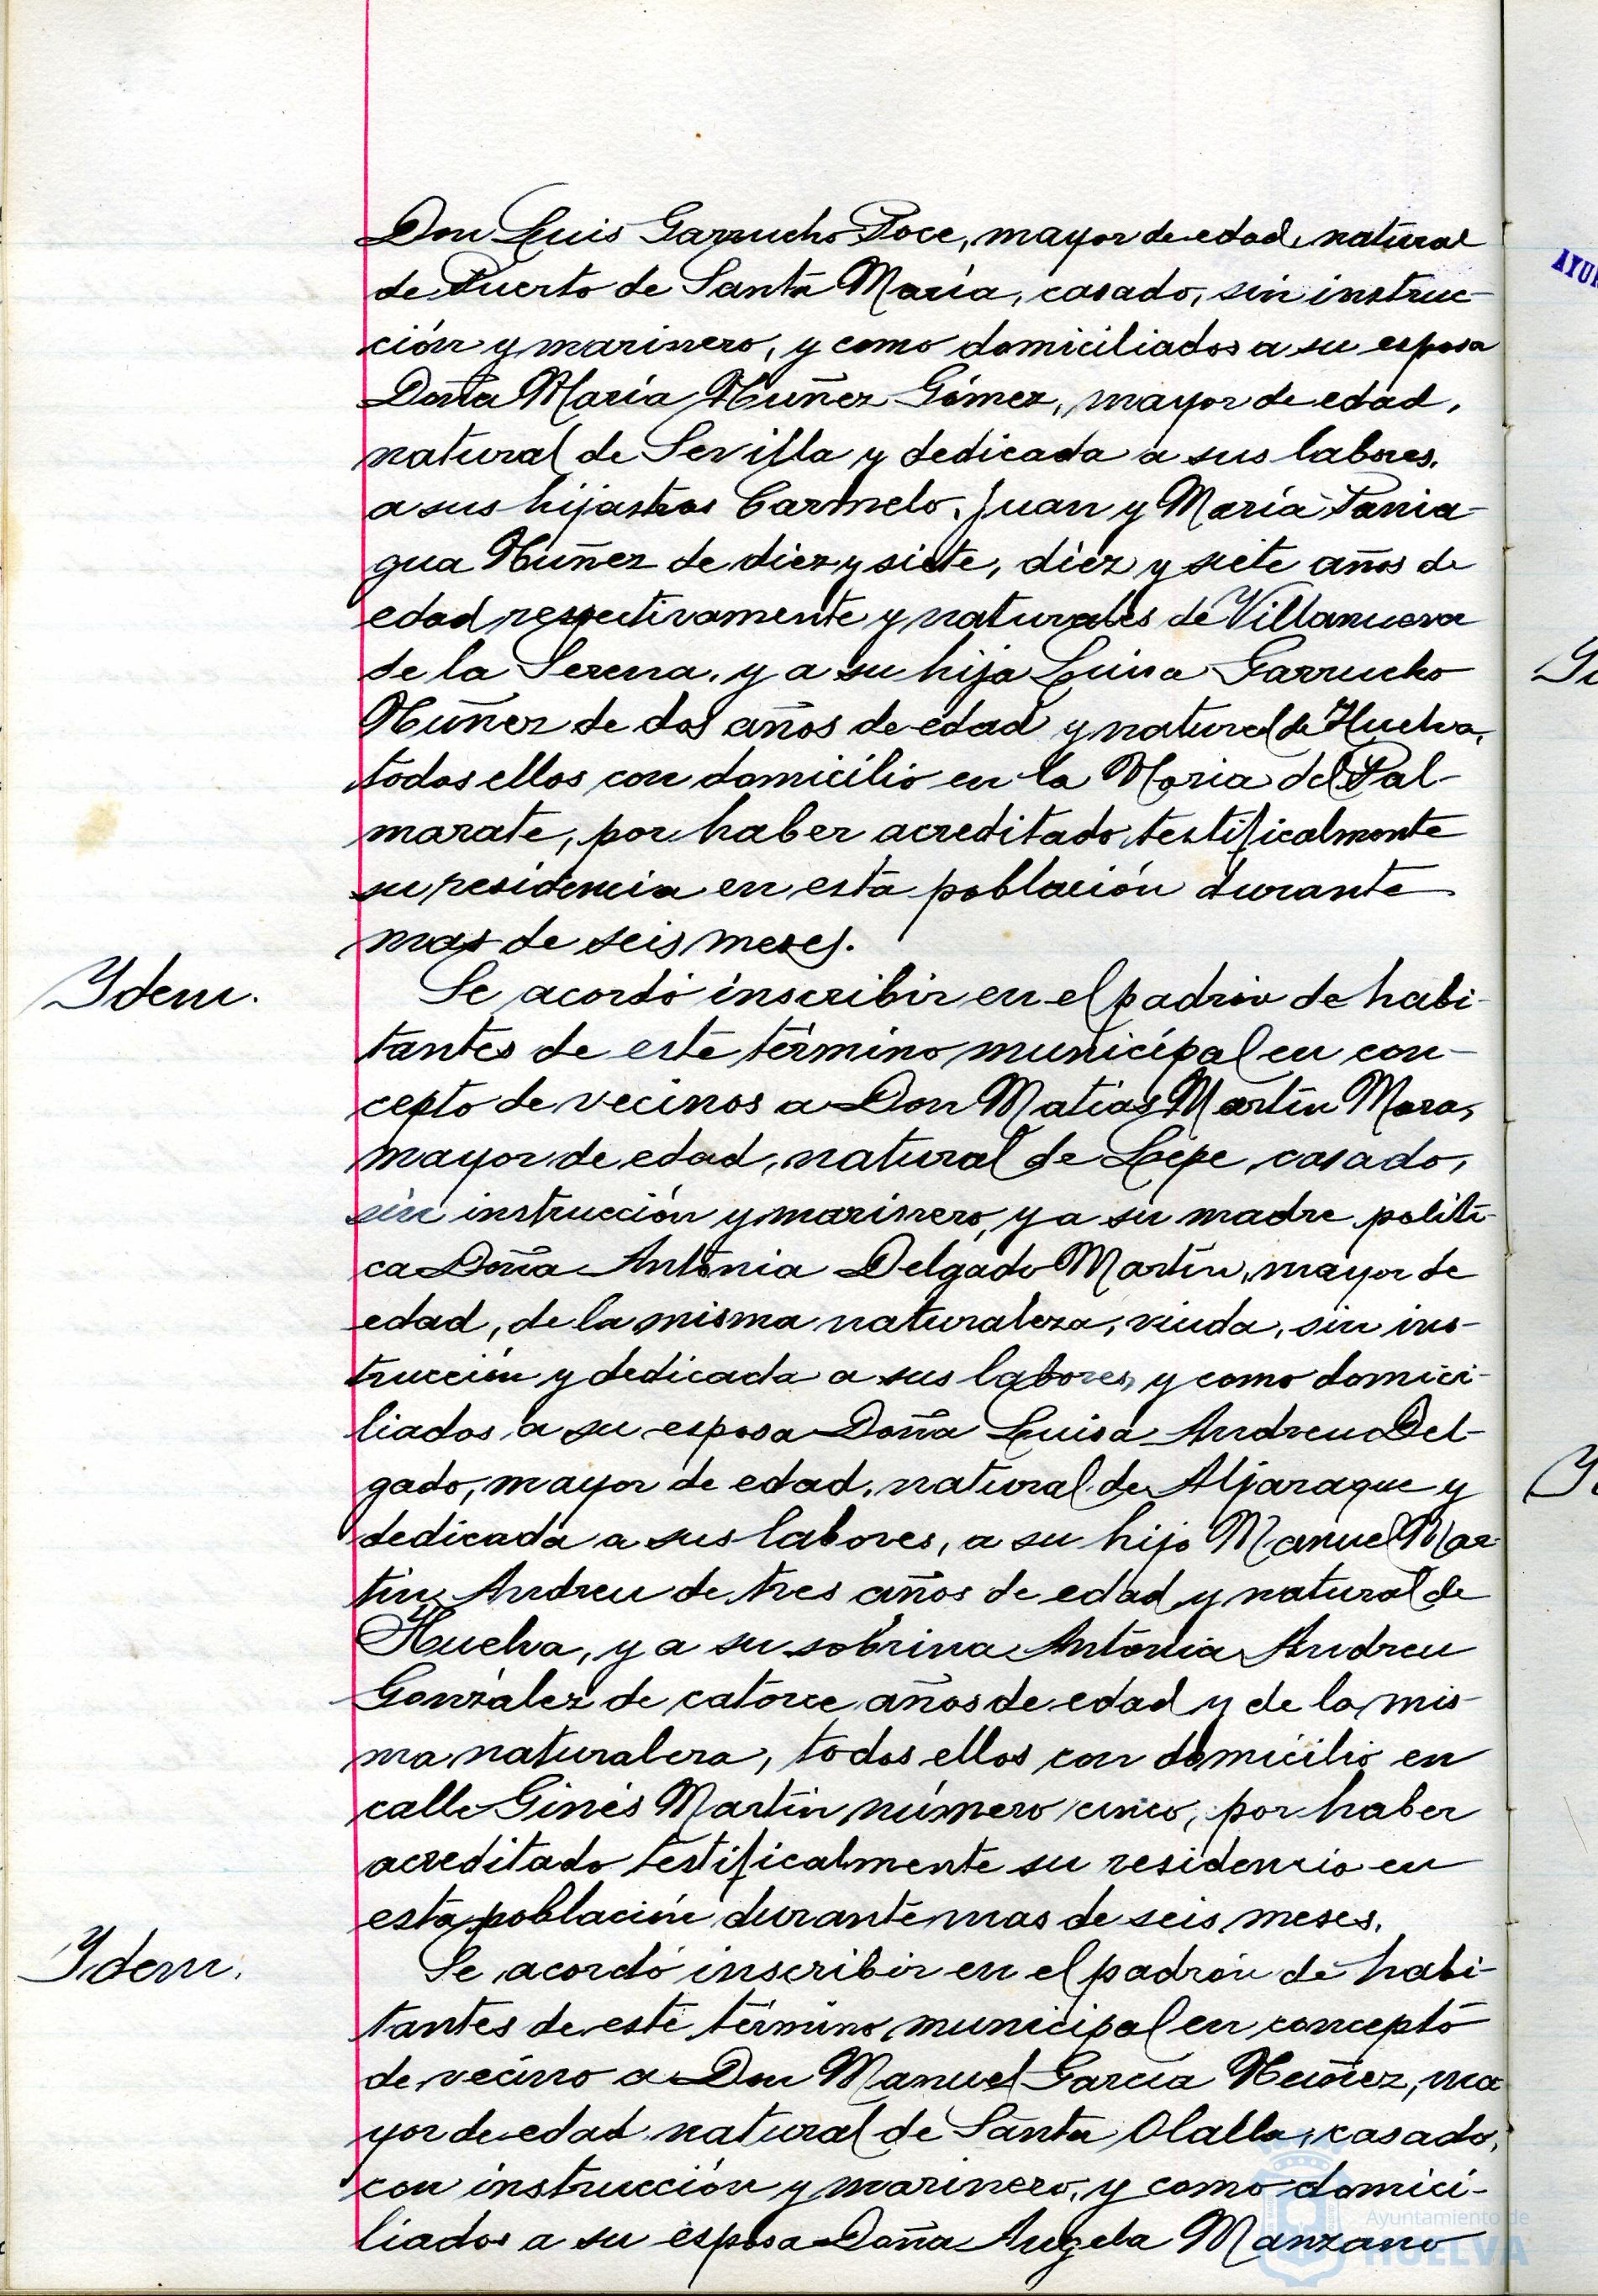 Don Luis Garrucho Poce, mayor de edad, natural
de Puerto de Santa María, casado, sin instruc-
ción y marinero, y como domiciliados a su esposa
Doña María Nuñez Gómez, mayor de edad,
natural de Sevilla y dedicada a sus labores,
a sus hijastros Carmelo, Juan y María Pania-
gua Nuñez de diez y siete, diez y siete años de
edad respectivamente y naturales de Villanueva
de la Serena, y a su hija Luisa Garrucho
Nuñez de dos años de edad y natural de Huelva,
todos ellos con domicilio en la Noria del Pal-
marate, por haber acreditado testificalmente
su residencia en esta población durante
mas de seis meses.
Ydem.
Se acordó inscribir en el padrón de habi-
tantes de este término municipal en con-
cepto de vecinos a Don Matias Martín Mora,
mayor de edad, natural de Lepe, casado,
sin instrucción y marinero, y a su madre politi-
ca Doña Antonia Delgado Martín, mayor de
edad, de la misma naturaleza, viuda, sin ins-
trucción y dedicada a sus labores, y como domici-
liados a su esposa Doña Luisa Andreu Del-
gado, mayor de edad, natural de Aljaraque y
dedicada a sus labores, a su hijo Manuel Mar-
tín Andreu de tres años de edad y natural de
Huelva, y a su sobrina Antonia Andreu
González de catorce años de edad y de la mis-
ma naturaleza, todos ellos con domicilio en
calle Ginés Martín número cinco, por haber
acreditado testificalmente su residencia en
esta población durante mas de seis meses.
Ydem.
Se acordó inscribir en el padrón de habi-
tantes de este término municipal en concepto
de vecino a Don Manuel García Nuñez, ma
yor de edad natural de Santa Olalla, casado,
con instrucción y marinero, y como domici-
liados a su esposa Doña Angela Manzano
Ayuntamiento de
HUELVA